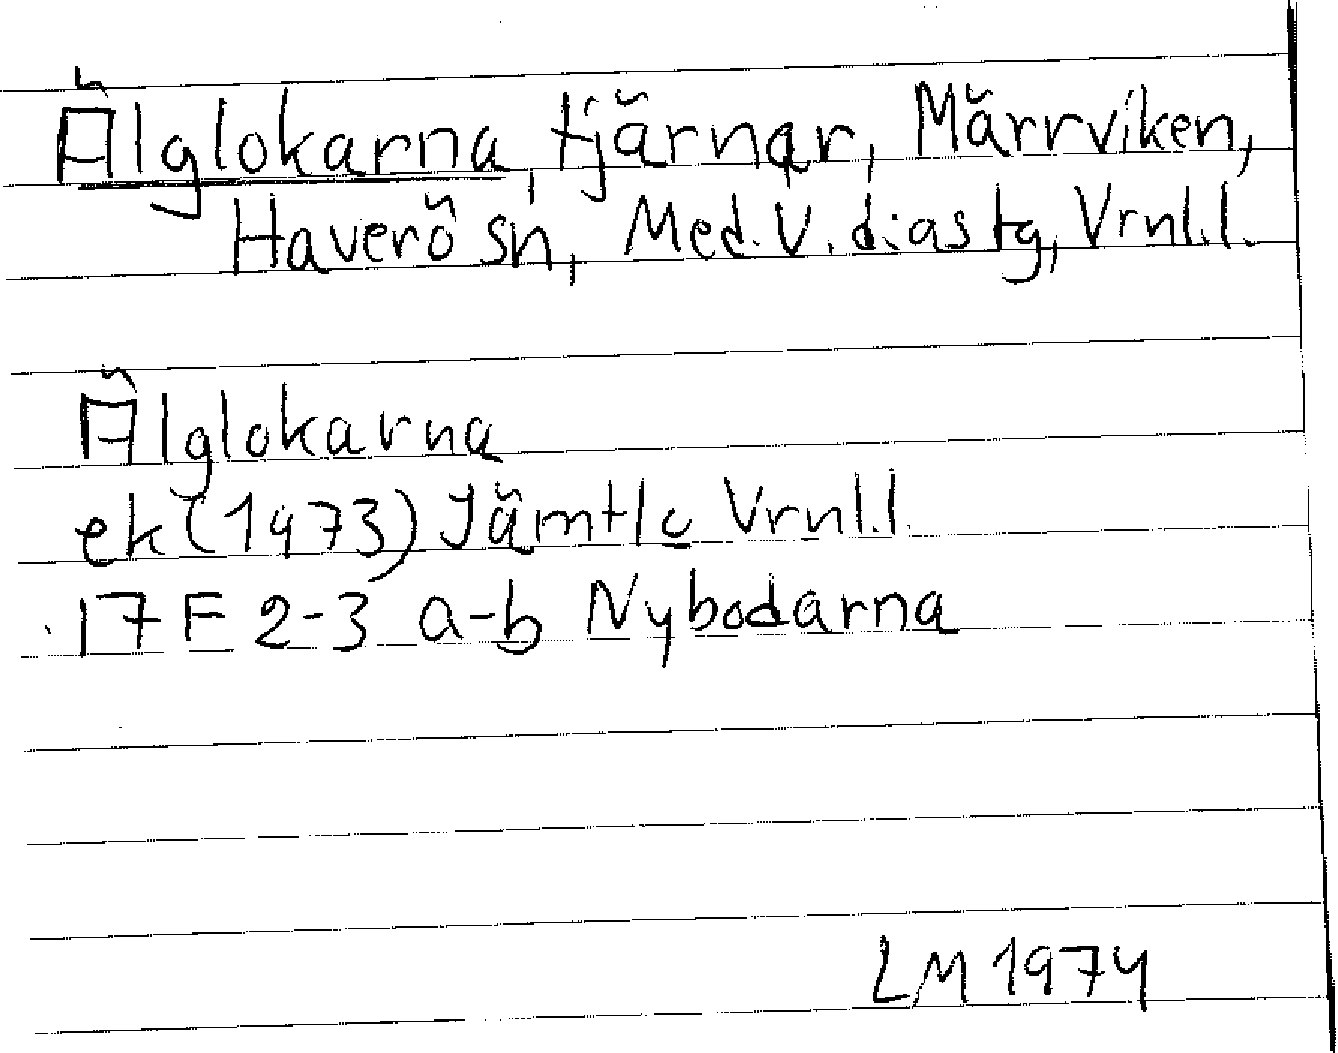 Älglokarna, tjärnar, Märrviken,
Haverö sn, Med.V.dias tg, Vrnl.l.
Älglokarna
ek(1973) Jämtlc Vrnl.l.
17 F 2-3 a-b Nybodarna
LM 1974